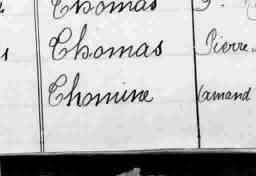 Thomas
Thomas Pierre
Thomine Armand